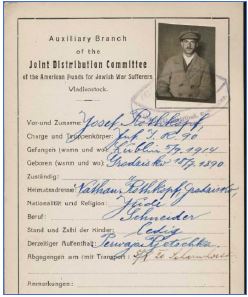 Auxiliary Branch
of the
Joint Distribution Committee
of the American Funds for Jewish War Sufferers
Vladivostock.
Vor-und Zuname: Josef Rothkopf
Charge und Truppenkörper: Inf. I. R. 90
Gefangen (wann und wo) Lublin 5/9 1914
Geboren (wann und wo) Grodzisko 1890
Zuständig:
Heimatsadresse: Nathan Rothkopf Grodzisko,
Nationalität und Religion: Jude
Beruf: Schneider
Stand und Zahl der Kinder: ledig
Derzeitiger Aufenthalt: Perwaja Rjetschka
Abgegangen am (mit Transport):
Bemerkungen: